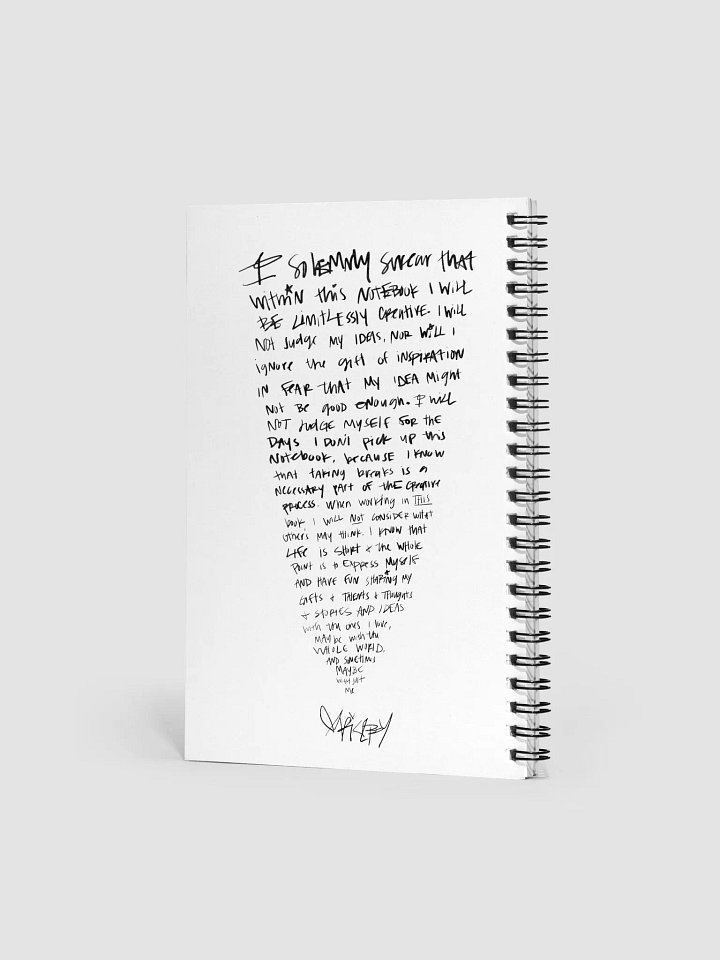 I SOLEMNLY SWEAR THAT
WITHIN THIS NOTEBOOK I WILL
BE LIMITLESSLY CREATIVE. I WILL
NOT JUDGE MY IDEAS, NOR WILL I
IGNORE THE GIFT OF INSPIRATION
IN FEAR THAT MY IDEA MIGHT
NOT BE GOOD ENOUGH. I WILL
NOT JUDGE MYSELF FOR THE
DAYS I DON'T PICK UP THIS
NOTEBOOK, BECAUSE I KNOW
THAT TAKING BREAKS IS A
NECESSARY PART OF THE CREATIVE
PROCESS. WHEN WORKING IN THIS
BOOK, I WILL NOT CONSIDER WHAT
OTHERS MAY THINK. I KNOW THAT
LIFE IS SHORT & THE WHOLE
POINT IS TO EXPRESS MYSELF
AND HAVE FUN SHARING MY
GIFTS & TALENTS & THOUGHTS
& STORIES AND IDEAS
WITH THE ONES I LOVE,
MAYBE WITH THE
WHOLE WORLD,
AND SOMETIMES
MAYBE
WITH JUST
ME